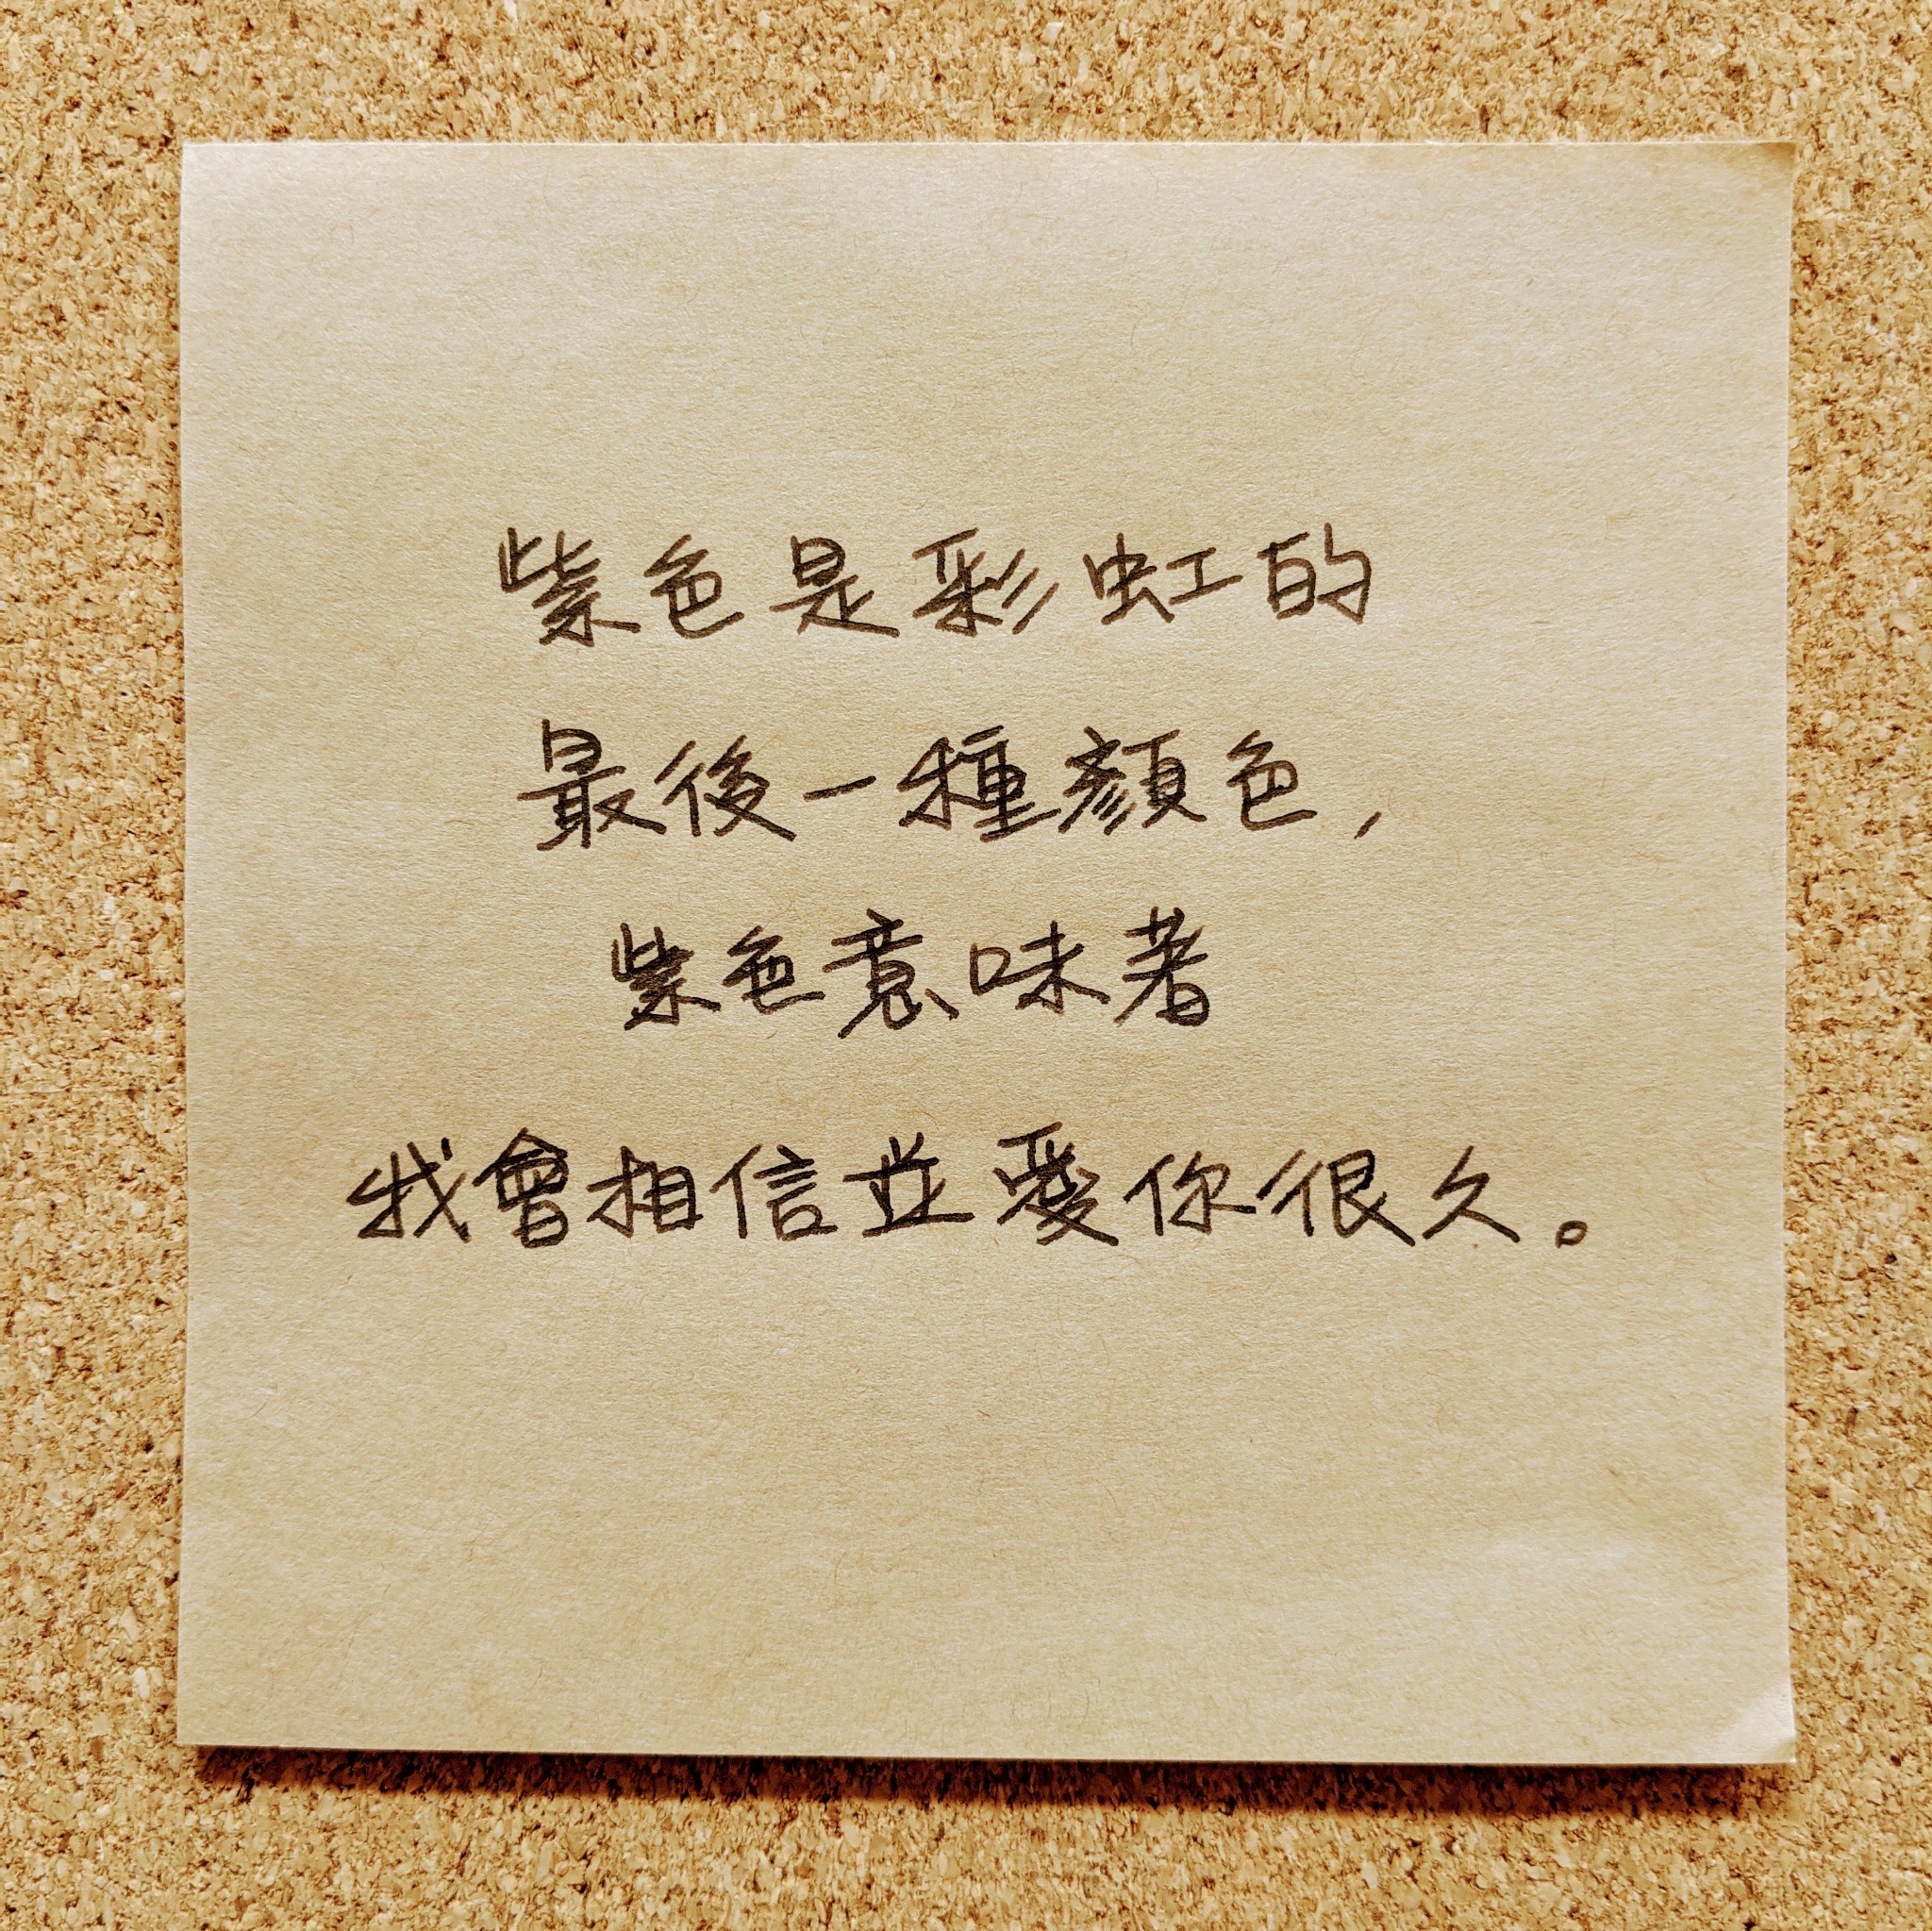 紫色是彩虹的
最後一種顏色,
紫色意味著
我會相信並愛你很久。